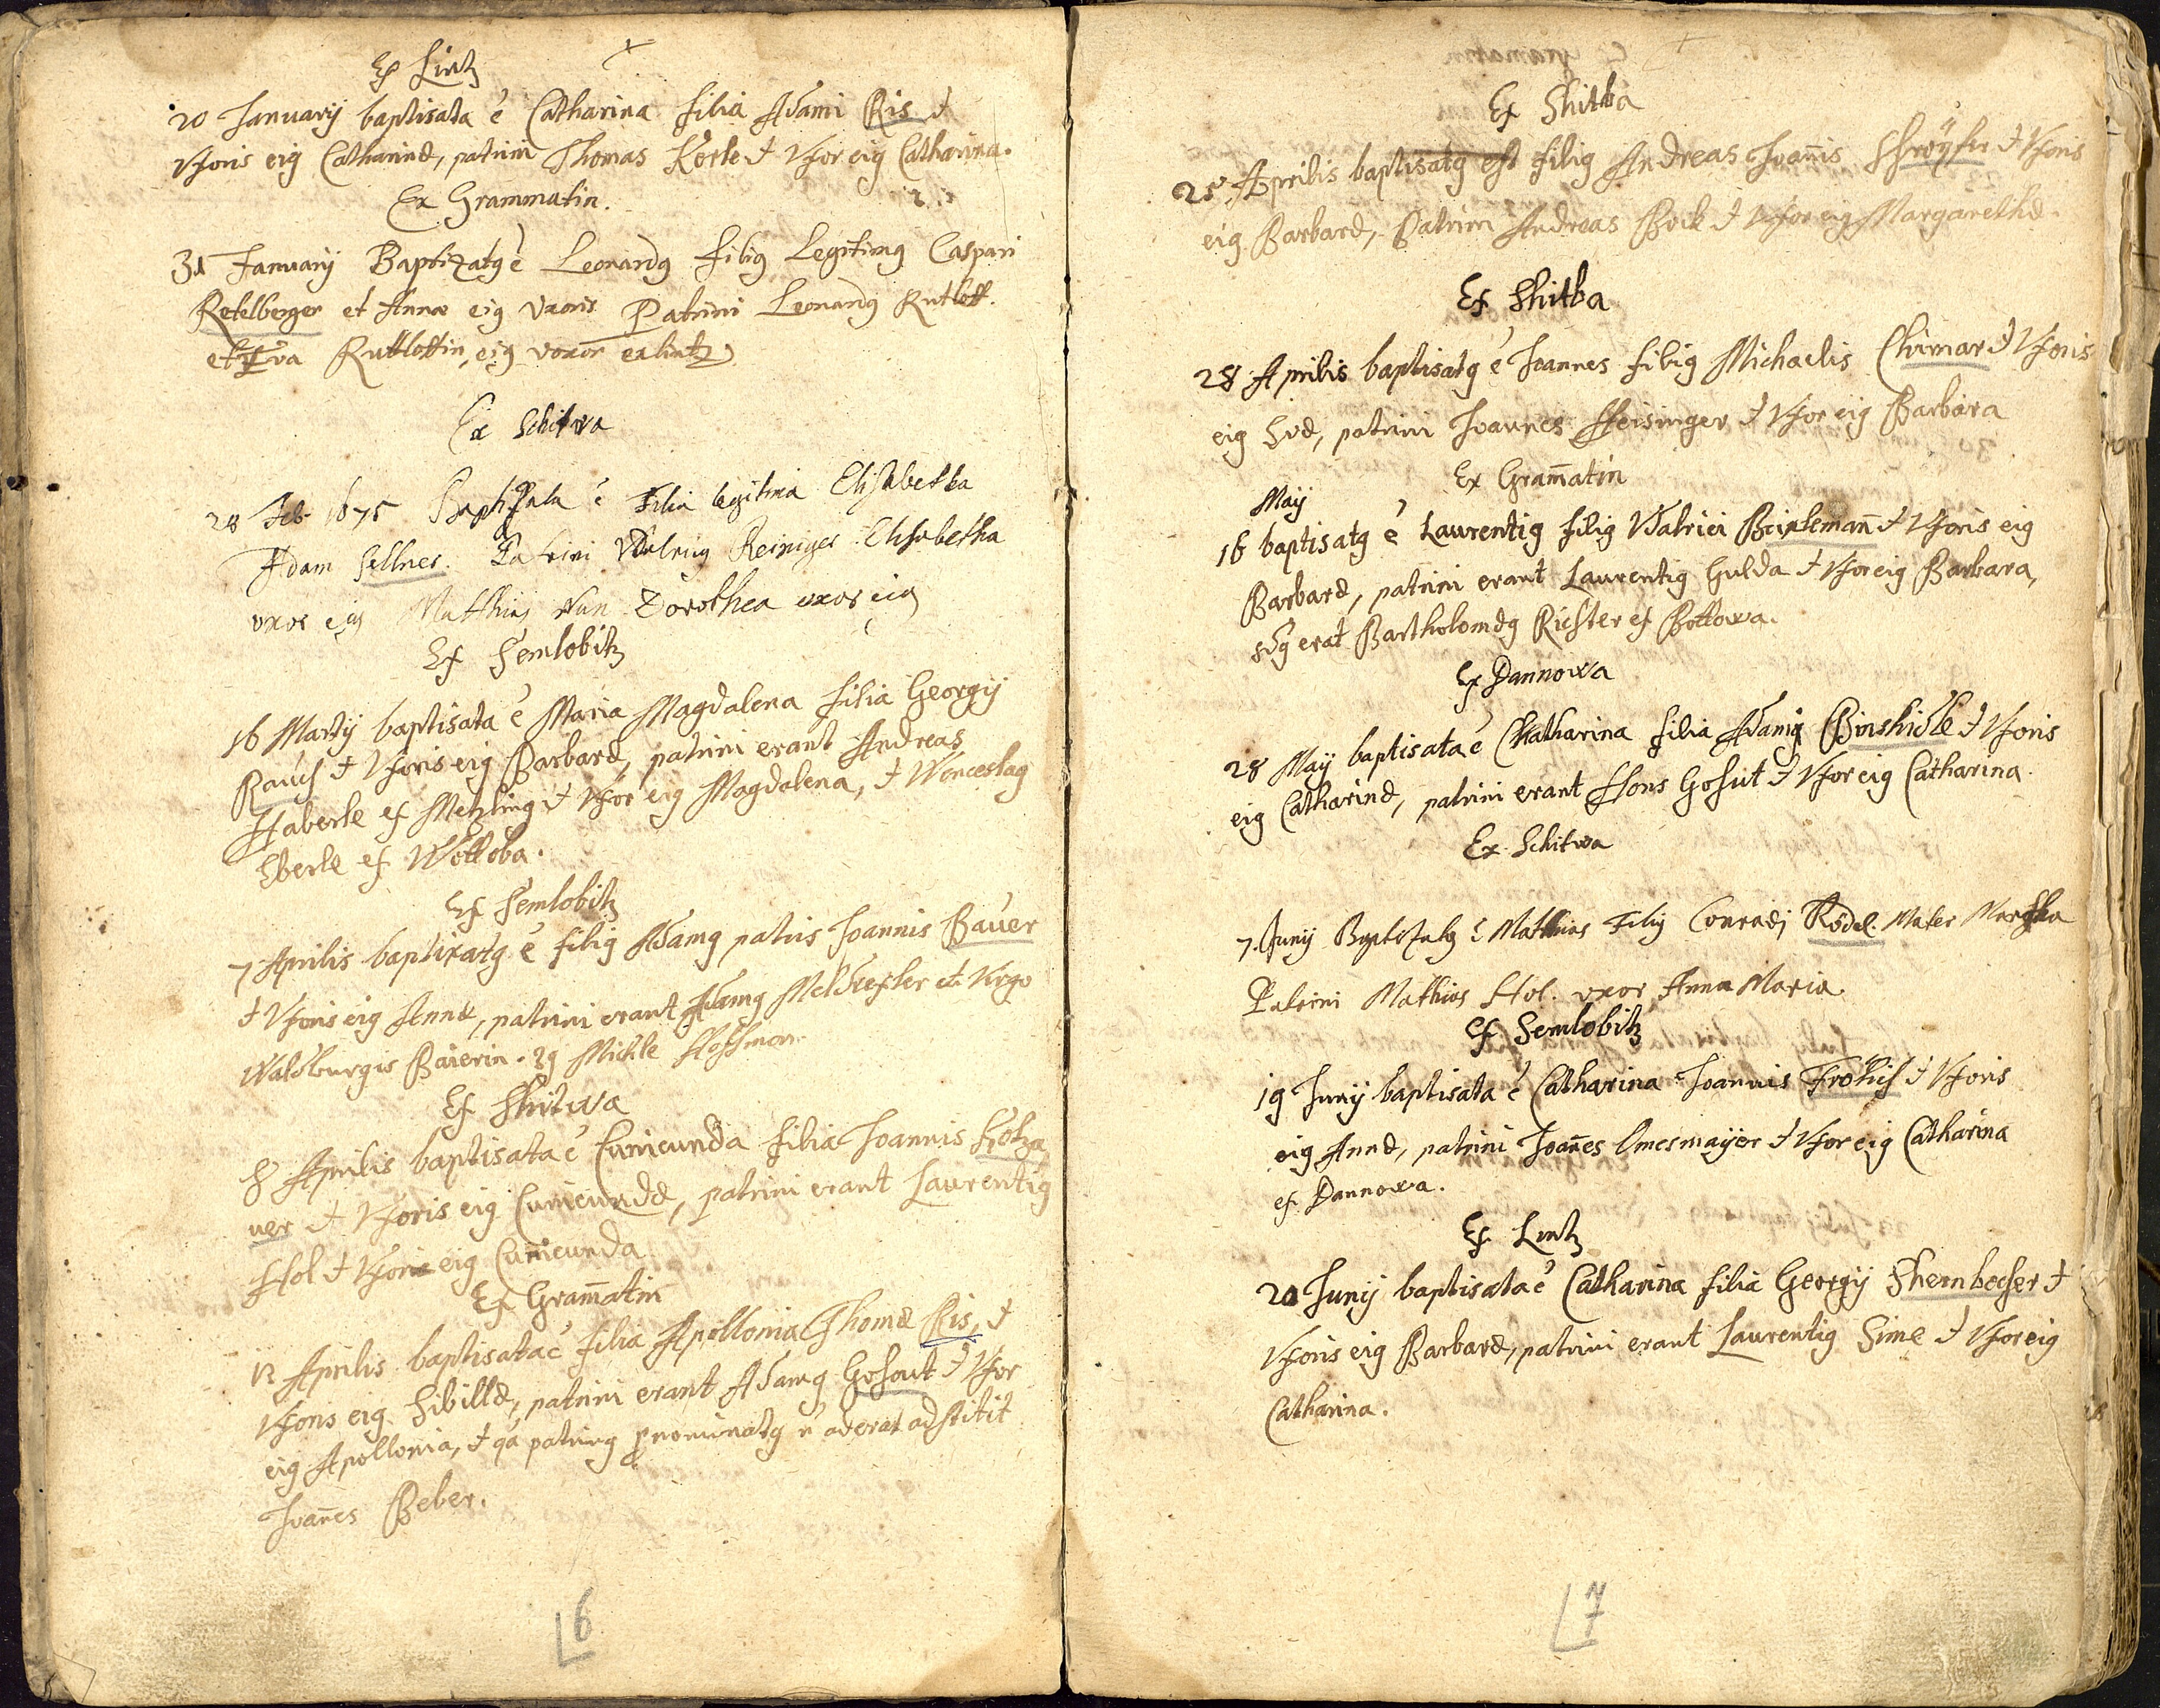 Ex Lintz
20 January baptisata ē Catharina filia Adami Ris et
Vxoris eig Catharinæ, patrini Thomas Körle et Vxor eig Catharina.
Ex Grammatin.
31 January Baptizatg ē Leonardg filig Legitimg Caspari
Retelberger et Annæ eig Vxoris Patrini Leonardg Rutloff.
et Eva Ruttloffin eig voxor ex lintz
Ex Schitwa
28 Feb 1675 Baptizata ē Filia legitima Elisabetha
Adam Sellner. Patrini Vdalricg Reiniger Elisabetha
vxor eig Matthias Nan Dorothea uxor eig
Ex Semlobitz
16 Martij baptisata ē Maria Magdalena filia Georgij
Rauch et Vxoris eig Barbaræ, patrini erant Andreas
Haberle ex Metzling et Vxor eig Magdalena, et Wenceslag
Eberle ex Wottoba.
Ex Semlobitz
7 Aprilis baptizatg ē filig Adamg patris Joannis Bauer
et Vxoris eig Annæ, patrini erant Adamg Meldrexler et Virgo
Waldburgis Baierin. 2g Michle Hoffman
Ex Shitwa
8 Aprilis baptisata ē Cunicunda filia Joannis Hotza
uer et Vxoris eig Cunicundæ, patrini erant Laurentig
Hol et Vxoris eig Cunnicunda
Ex Gram̄atin
12 Aprilis baptisata ē filia Apollonia Thomæ Ris, et
Vxoris eig Sibillæ, patrini erant Adamg Gosout et Vxor
eig Apollonia, et qa patring prnominatg n̄ aderat adstitit
Joan̄es Beber.
6
Ex Shitba
25 Aprilis baptisatg est filig Andreas Joan̄is et Vxoris
eig Barbaræ, Patrini Andreas Bock et Vxor eig Margarethæ.
Ex Shitba
28 Aprilis baptisatg ē Joannes filig Michaelis Chimar et Vxoris
eig Evæ, patrini Joannes Heisinger et Vxor eig Barbara
Ex Gram̄atin
May
16 baptisatg ē Laurentig filig Vdalrici Brinkeman̄ et Vxoris eig
Barbaræ, patrini erant Laurentig Gulda et Vxor eig Barbara,
2dg erat Bartholomæg Richter ex Bottowa.
Ex Dannowa
28 May baptisata ē Chatharina filia Adamig Binshidle et Vxoris
eig Catharinæ, patrini erant Hons Gosut et Vxor eig Catharina.
Ex Schitwa
7. Junij Baptizatg ē Matthias Filig Conradj Rödel. Mater Margtha
Patrini Mathias Hol. vxor Anna Maria
Ex Semlobitz
19 Junij baptisata ē Catharina Joannis Frölich et Vxoris
eig Annæ, patrini Joan̄es Omesmayer et Vxor eig Catharina
ex Dannowa.
Ex Lintz
20 Junij baptisata ē Catharina filia Georgij Shernbecher et
Vxoris eig Barbaræ, patrini erant Laurentig Sime et Vxor eig
Catharina.
7